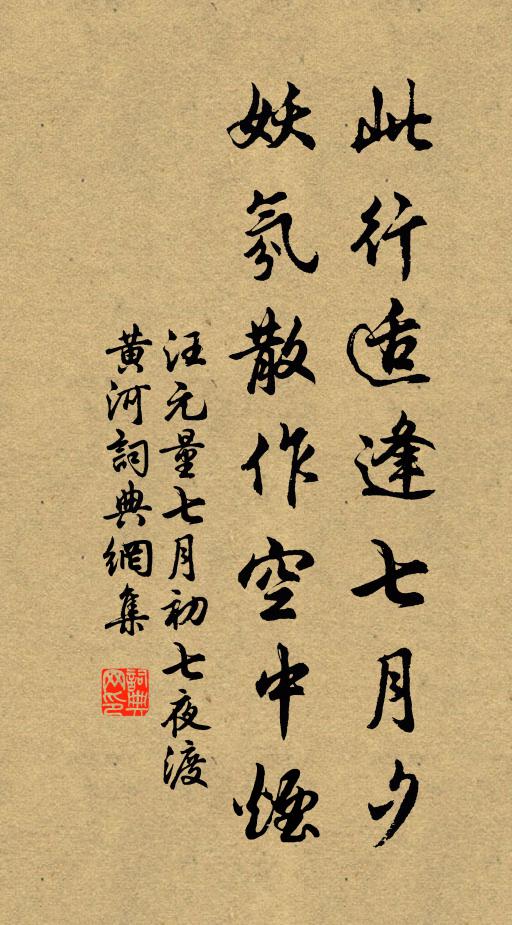 此行适逢七月夕
妖氛散作空中煙
汪元量七月初七夜渡
黄河詞典網集
詞典网印